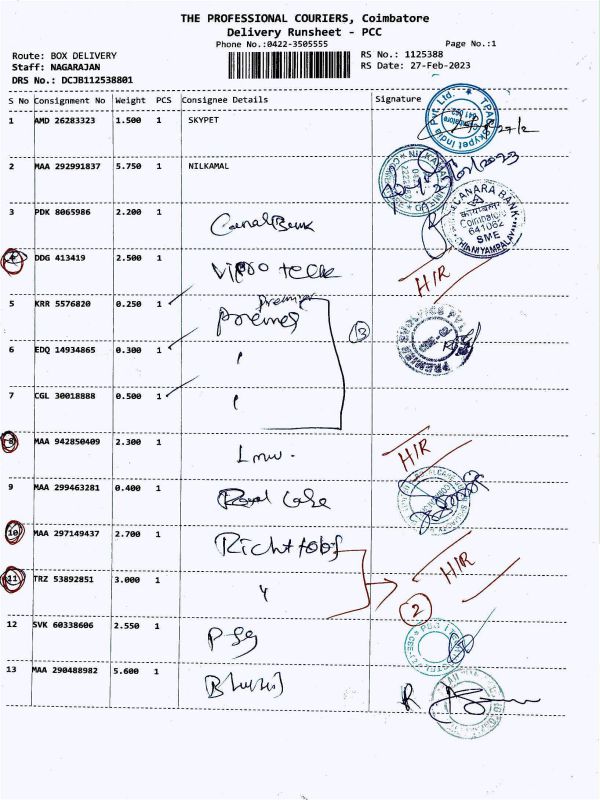 THE PROFESSIONAL COURIERS, Coimbatore
Delivery Runsheet - PCC
Phone No.:0422-3505555
Page No.:1
Route: BOX DELIVERY
RS No.: 1125388
Staff: NAGARAJAN
RS Date: 27-Feb-2023
DRS No.: DCJB112538801
S No Consignment No Weight PCS Consignee Details Signature
1 AMD 26283323 1.500 1 SKYPET
Skypet India Pvt. Ltd.
2 MAA 292991837 5.750 1 NILKAMAL
NILKAMAL
3 PDK 8065986 2.200 1 Canal Bank
CANARA BANK
Coimbatore
641062
SME
4 DDG 413419 2.500 1 Vipro teck H/R
5 KRR 5576820 0.250 1 Premier
3
6 EDQ 14934865 0.300 1 "
7 CGL 30018888 0.500 1 "
8 MAA 942850409 2.300 1 Lmw. H/R
9 MAA 299463281 0.400 1 Royal Care
10 MAA 297149437 2.700 1
H/R
11 TRZ 53892851 3.000 1 "
2
12 SVK 60338606 2.550 1 PSG
13 MAA 290488982 5.600 1